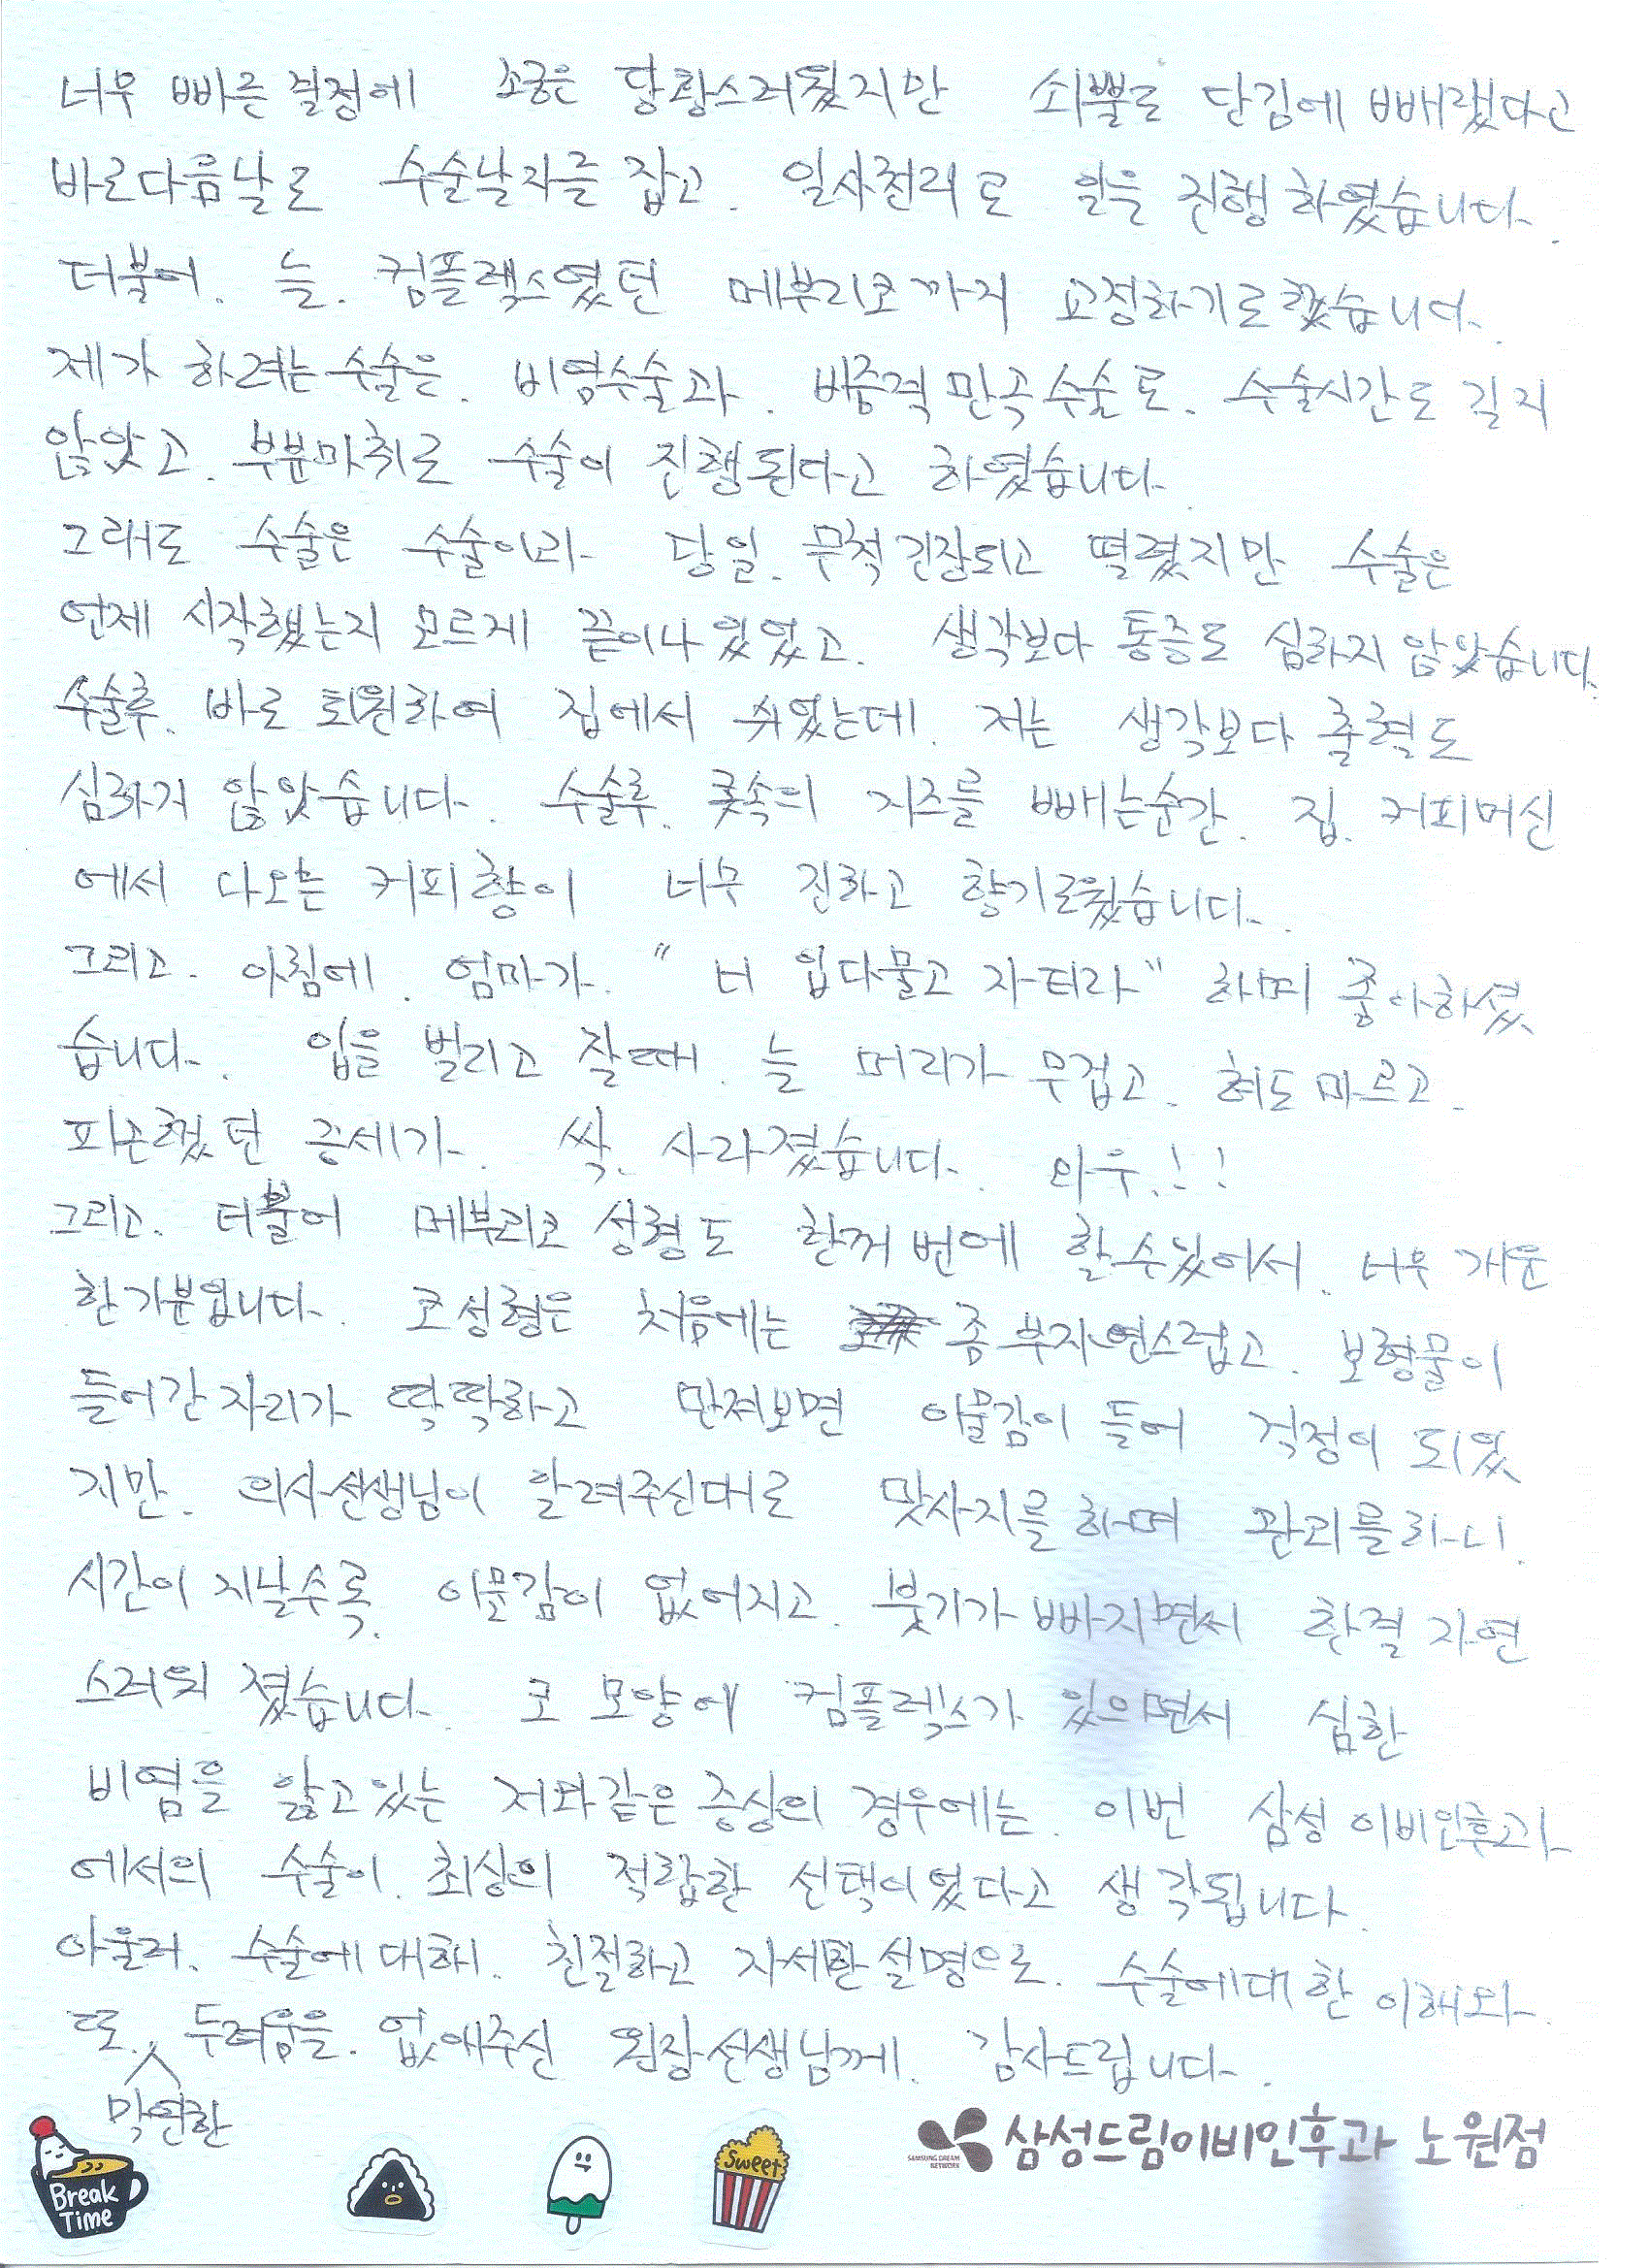 너무 빠른 결정에 조금은 당황스러웠지만 쇠뿔로 단김에 빼랬다고
바로다음날로 수술날자를 잡고. 일사천리로 일을 진행하였습니다.
더불어. 늘. 컴플렉스였던 메부리코까지 교정하기로했습니다.
제가 하려는수술은. 비염수술과. 비중격만곡수술로. 수술시간도 길지
않았고. 부분마취로 수술이 진행된다고 하였습니다.
그래도 수술은 수술이라 당일. 무척긴장되고 떨렸지만 수술은
언제 시작했는지 모르게 끝이나있었고. 생각보다 통증도 심하지 않았습니다.
수술후. 바로 퇴원하여 집에서 쉬었는데. 저는 생각보다 출혈도
심하지 않았습니다. 수술후. 콧속의 거즈를 빼는순간. 집. 커피머신
에서 나오는 커피향이 너무 진하고 향기로웠습니다.
그리고. 아침에. 엄마가. "너 입다물고 자더라" 하며 좋아하셨
습니다. 입을 벌리고 잘때. 늘 머리가 무겁고. 혀도마르고.
피곤했던 증세가. 싹. 사라졌습니다. 와우.!!
그리고. 더불어 메부리코 성형도 한꺼번에 할수있어서. 너무 개운
한기분입니다. 코성형은 처음에는 좀 부자연스럽고. 보형물이
들어간자리가 딱딱하고 만져보면 이물감이 들어 걱정이 되었
지만. 의사선생님이 알려주신대로 맛사지를하며 관리를하니.
시간이 지날수록. 이물감이 없어지고. 붓기가 빠지면서 한결 자연
스러워 졌습니다. 코 모양에 컴플렉스가 있으면서 심한
비염을 앓고있는 저와같은 증상의 경우에는. 이번 삼성이비인후과
에서의 수술이. 최상의 적합한 선택이었다고 생각됩니다.
아울러. 수술에대해. 친절하고 자세한설명으로. 수술에대한 이해와.
또. 막연한 두려움을. 없애주신 원장선생님께. 감사드립니다.
Break
Time
Sweet
SAMSUNG DREAM
NETWORK
삼성드림이비인후과 노원점